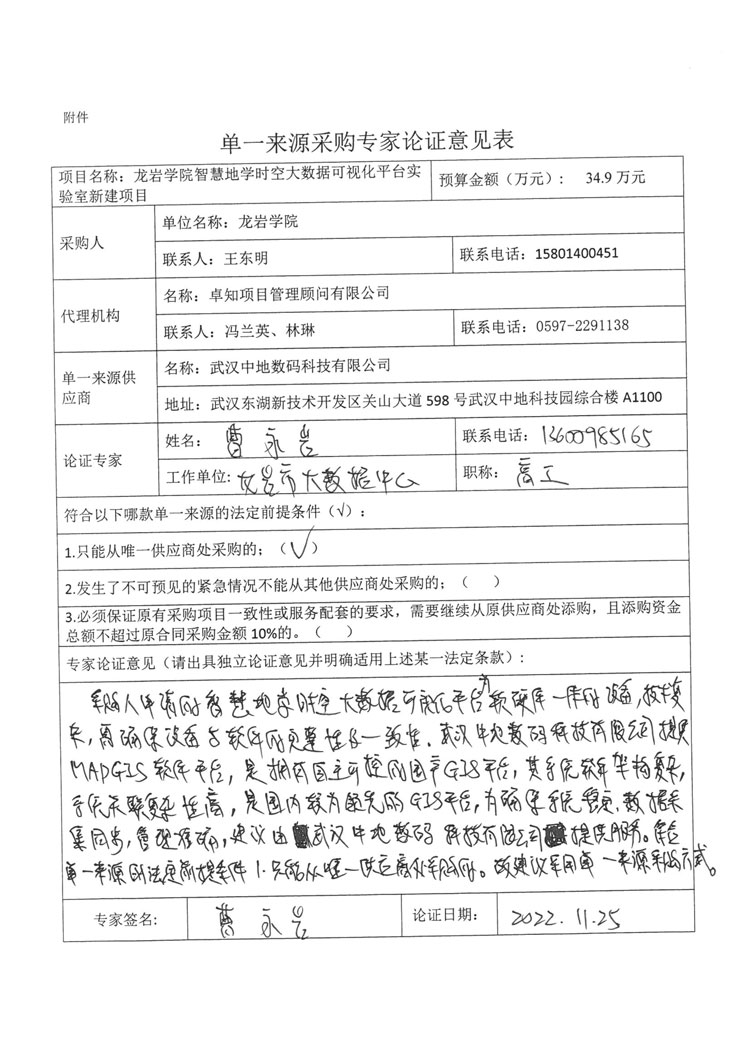 附件
单一来源采购专家论证意见表
项目名称：龙岩学院智慧地学时空大数据可视化平台实
验室新建项目
预算金额（万元）： 34.9 万元
采购人
单位名称：龙岩学院
联系人：王东明
联系电话：15801400451
代理机构
名称：卓知项目管理顾问有限公司
联系人：冯兰英、林琳
联系电话：0597-2291138
单一来源供
应商
名称：武汉中地数码科技有限公司
地址：武汉东湖新技术开发区关山大道 598 号武汉中地科技园综合楼 A1100
论证专家
姓名：曹永岩
联系电话：13600985165
工作单位：龙岩市大数据中心
职称：高工
符合以下哪款单一来源的法定前提条件（√）：
1.只能从唯一供应商处采购的；（√）
2.发生了不可预见的紧急情况不能从其他供应商处采购的；（ ）
3.必须保证原有采购项目一致性或服务配套的要求，需要继续从原供应商处添购，且添购资金
总额不超过原合同采购金额 10%的。（ ）
专家论证意见（请出具独立论证意见并明确适用上述某一法定条款）：
采购人申请的智慧地学时空大数据可视化平台为软硬件一体的设备，技术复
杂，需确保设备与软件的完整性及一致性。武汉中地数码科技有限公司提供
MAPGIS软件平台，是拥有自主可控的国产GIS平台，其系统软件架构复杂，
系统关联复杂性高，是国内较为领先的GIS平台，为确保系统稳定，数据采
集同步，管理准确，建议由武汉中地数码科技有限公司提供服务。符合
单一来源的法定前提条件1.只能从唯一供应商处采购的。故建议采用单一来源采购方式。
专家签名：
曹永岩
论证日期：
2022.11.25